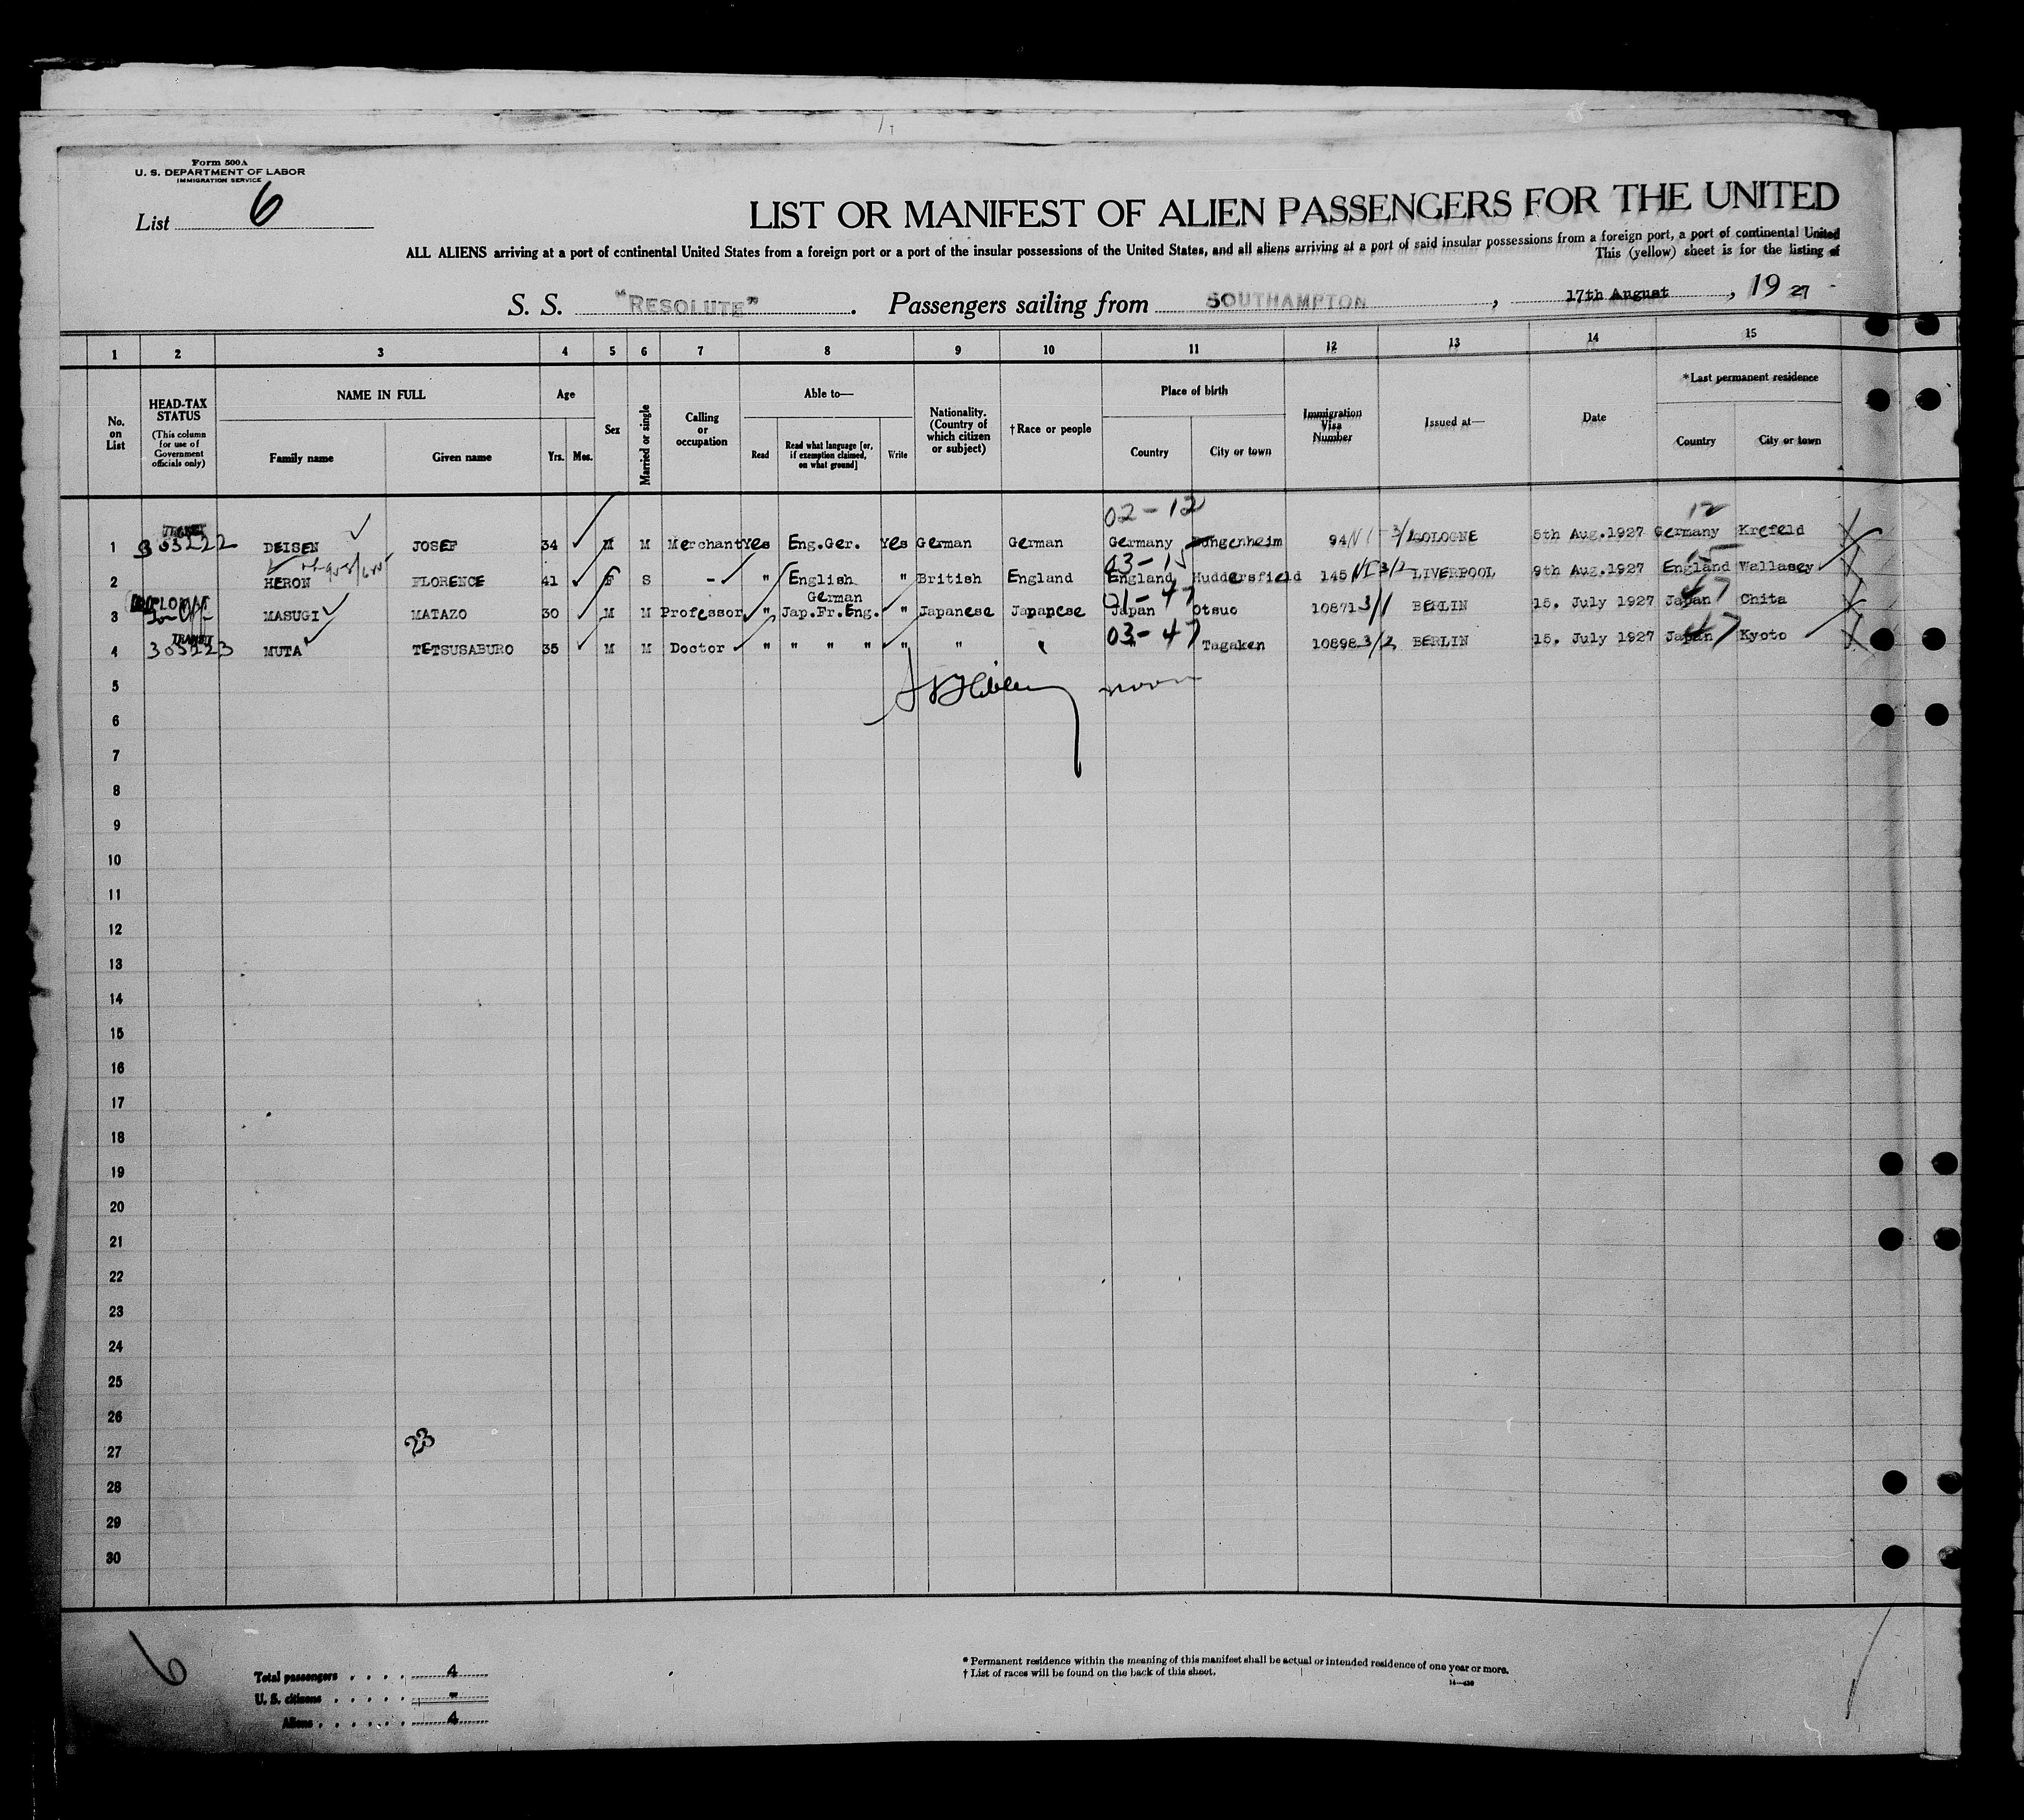 Form 500A
U. S. DEPARTMENT OF LABOR
IMMIGRATION SERVICE
List 6
LIST OR MANIFEST OF ALIEN PASSENGERS FOR THE UNITED
ALL ALIENS arriving at a port of continental United States from a foreign port or a port of the insular possessions of the United States, and all aliens arriving at a port of said insular possessions from a foreign port, a port of continental United
This (yellow) sheet is for the listing of
S. S. "RESOLUTE". Passengers sailing from SOUTHAMPTON, 17th August, 19 27
1 2 3 4 5 6 7 8 9 10 11 12 13 14 15
No. on List
HEAD-TAX STATUS
(This column for use of Government officials only)
NAME IN FULL
Family name
Given name
Age
Yrs.
Mos.
Sex
Married or single
Calling or occupation
Able to—
Read
Read what language [or, if exemption claimed, on what ground]
Write
Nationality. (Country of which citizen or subject)
†Race or people
Place of birth
Country
City or town
Immigration Visa Number
Issued at—
Date
*Last permanent residence
Country
City or town
02-12 12
1 303222 DEISEN JOSEF 34 M M Merchant Yes Eng.Ger. Yes German German Germany 94 3/2 COLOGNE 5th Aug.1927 Germany Krefeld
03-15 15
2 HERON FLORENCE 41 F S - " English " British England England Huddersfield 145 3/2 LIVERPOOL 9th Aug.1927 England Wallasey
DIPLOMAT German 01-47 47
3 MASUGI MATAZO 30 M M Professor " Jap.Fr.Eng. " Japanese Japanese Japan Otsuo 10871 3/1 BERLIN 15. July 1927 Japan Chita
TRANSIT 03-47 47
4 303223 MUTA TETSUSABURO 35 M M Doctor " " " " " " " Tagaken 10898 3/2 BERLIN 15. July 1927 Japan Kyoto
5
6
7
8
9
10
11
12
13
14
15
16
17
18
19
20
21
22
23
24
25
26
27
23
28
29
30
6
Total passengers . . . . 4
U. S. citizens . . . . . -
Aliens . . . . . . 4
* Permanent residence within the meaning of this manifest shall be actual or intended residence of one year or more.
† List of races will be found on the back of this sheet.